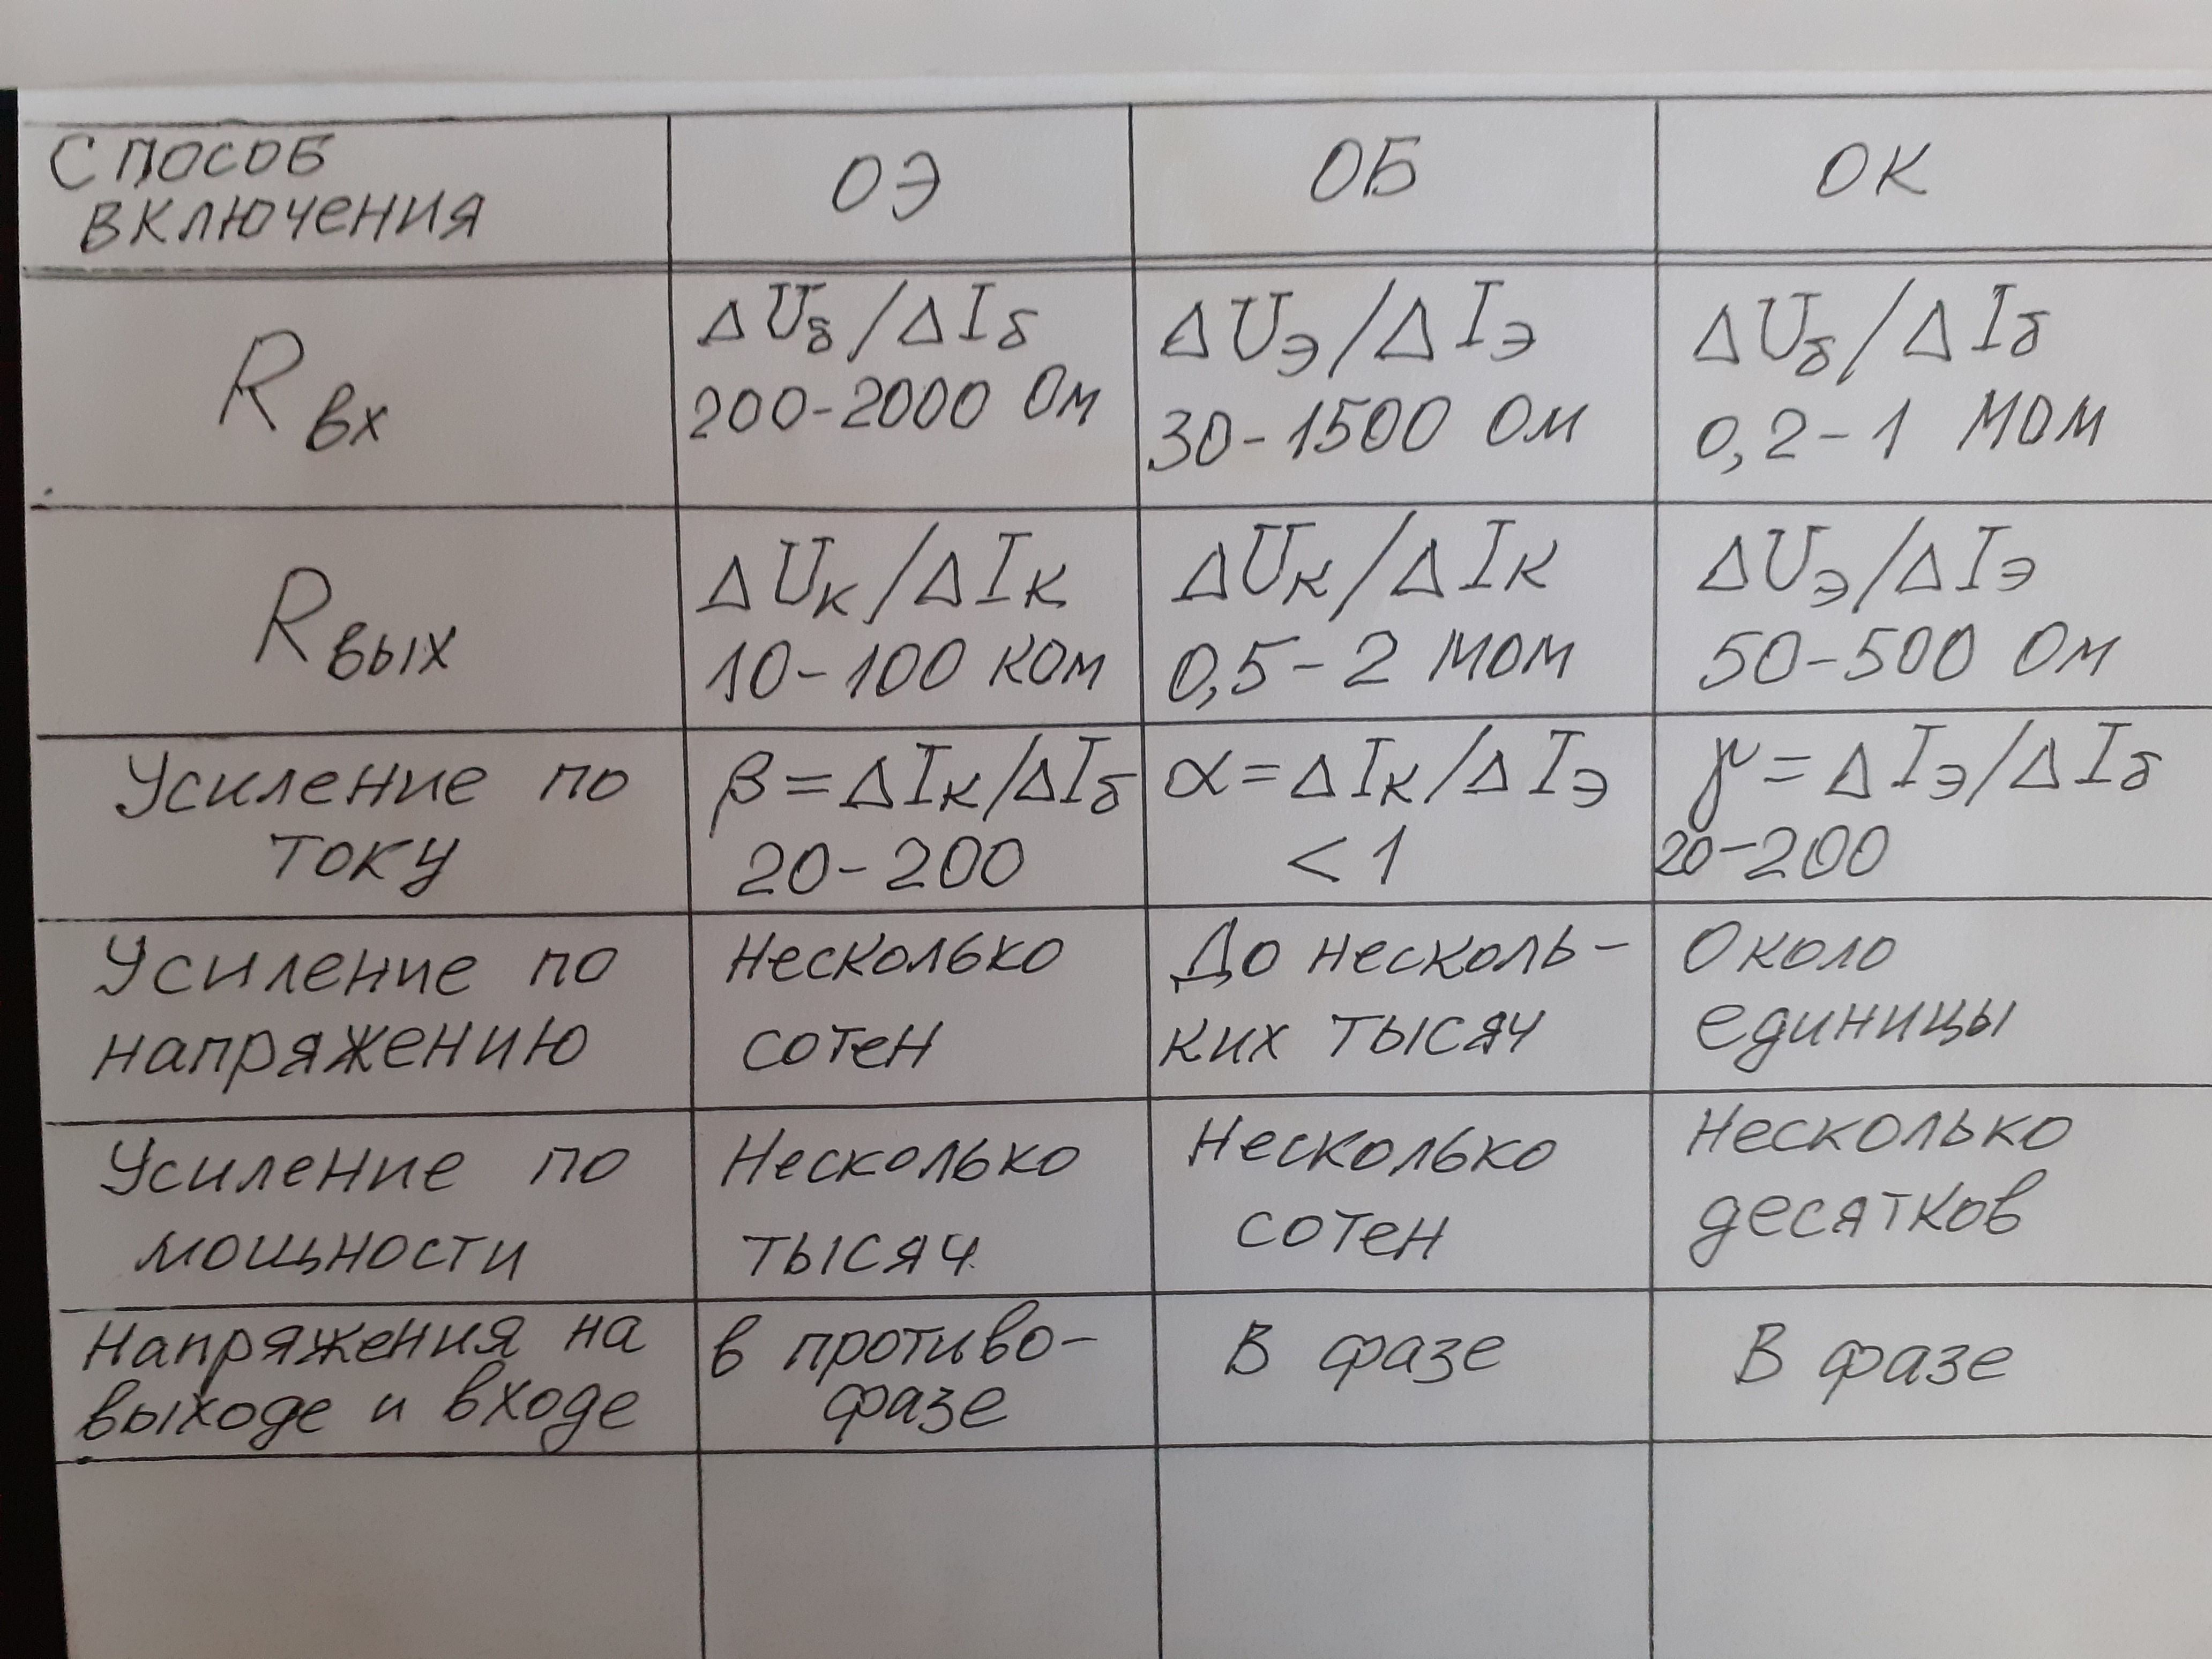 СПОСОБ
ВКЛЮЧЕНИЯ
ОЭ
ОБ
ОК
Rвх
ΔUб/ΔIб
200-2000 Ом
ΔUэ/ΔIэ
30-1500 Ом
ΔUб/ΔIб
0,2-1 МОМ
Rвых
ΔUк/ΔIк
10-100 КОМ
ΔUк/ΔIк
0,5-2 МОМ
ΔUэ/ΔIэ
50-500 Ом
Усиление по
току
β=ΔIк/ΔIб
20-200
α=ΔIк/ΔIэ
<1
γ=ΔIэ/ΔIб
20-200
Усиление по
напряжению
Несколько
сотен
До несколь-
ких тысяч
Около
единицы
Усиление по
мощности
Несколько
тысяч
Несколько
сотен
Несколько
десятков
Напряжения на
выходе и входе
в противо-
фазе
В фазе
В фазе